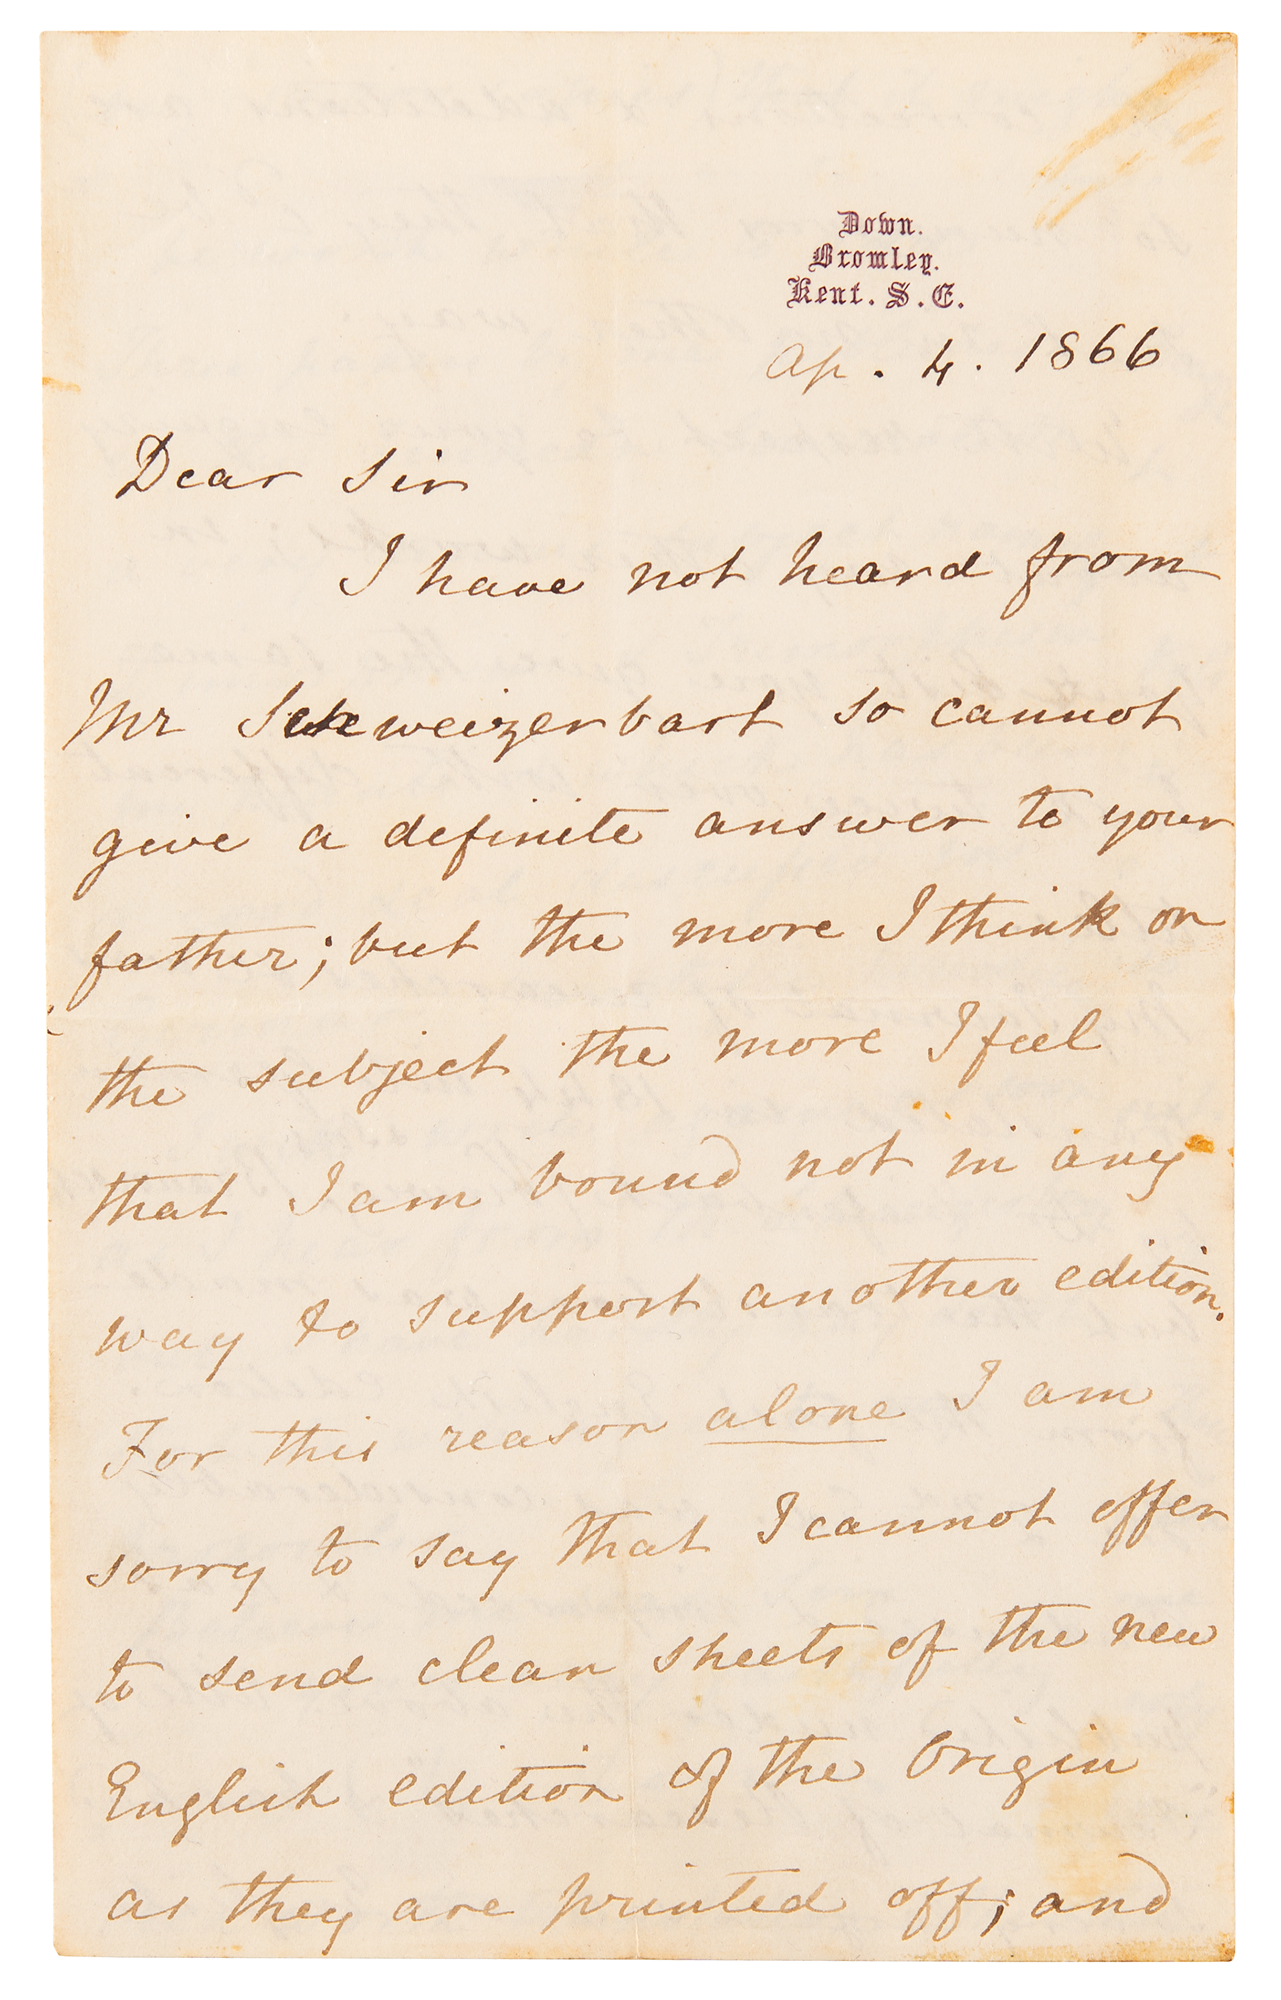 Down.
Bromley.
Kent. S. E.
Ap. 4. 1866
Dear Sir
I have not heard from
Mr Schweizerbart so cannot
give a definite answer to your
father; but the more I think on
the subject the more I feel
that I am bound not in any
way to support another edition.
For this reason alone I am
sorry to say that I cannot offer
to send clean sheets of the new
English edition of the Origin
as they are printed off; and